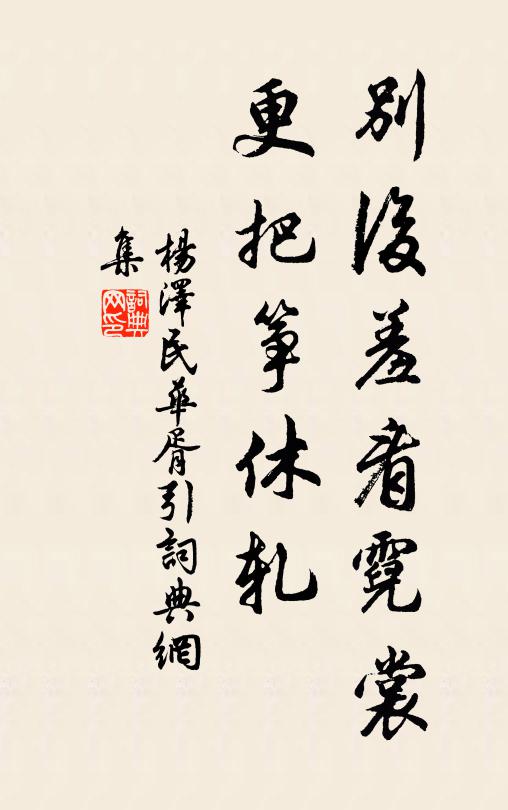 別後羞看霓裳
更把箏休軋
楊澤民華胥引詞典網
集
詞典
网印